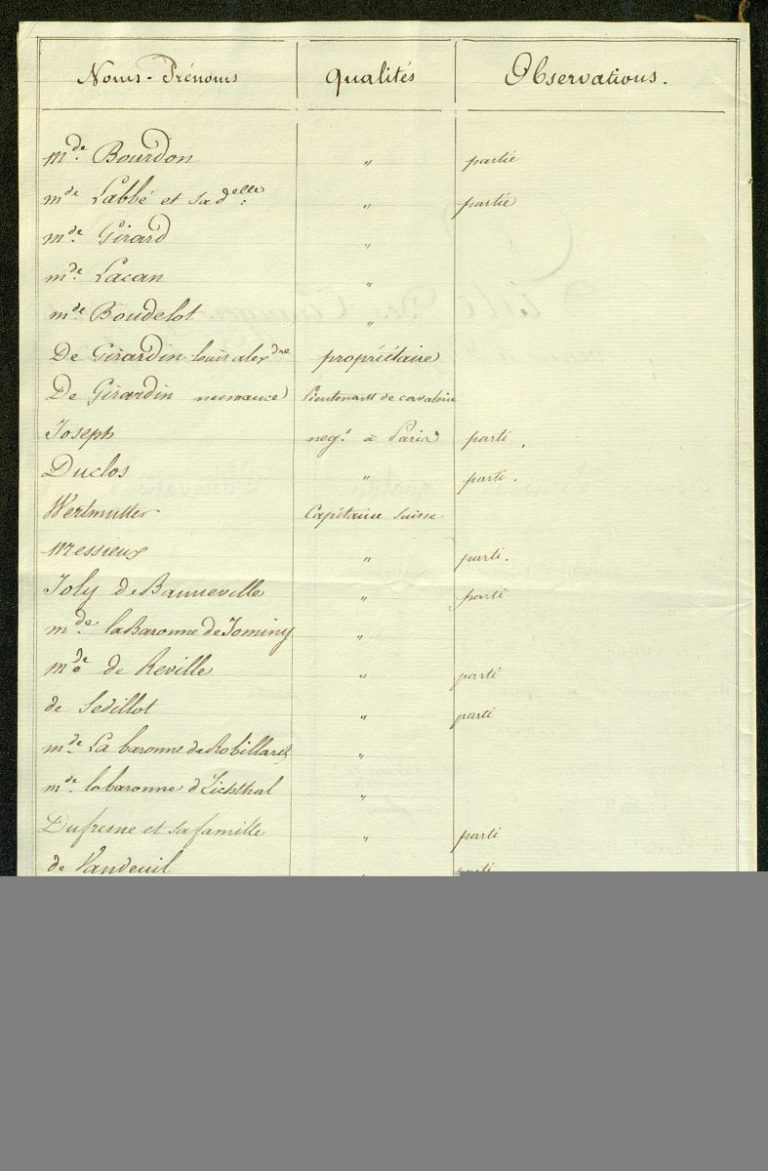 Noms-Prénoms qualités Observations.
mde. Bourdon " partie
mde Labbé et sa delle: " partie
mde. Girard "
mde. Lacan "
mde. Boudelot "
De Girardin louis alexdre propriétaire
De Girardin lieutenant de cavalerie
Joseph negt. à Paris parti.
Duclos " parti.
Wertmuller Capitaine suisse
Messieux " parti.
Joly de Banneville " parti
mde. la Baronne de Jominy "
mde de Reville " parti
de Sedillot " parti
mde. La baronne de Robillard "
mde. la baronne d'Eichthal "
Dufresne et sa famille " parti
de Vandeuil parti